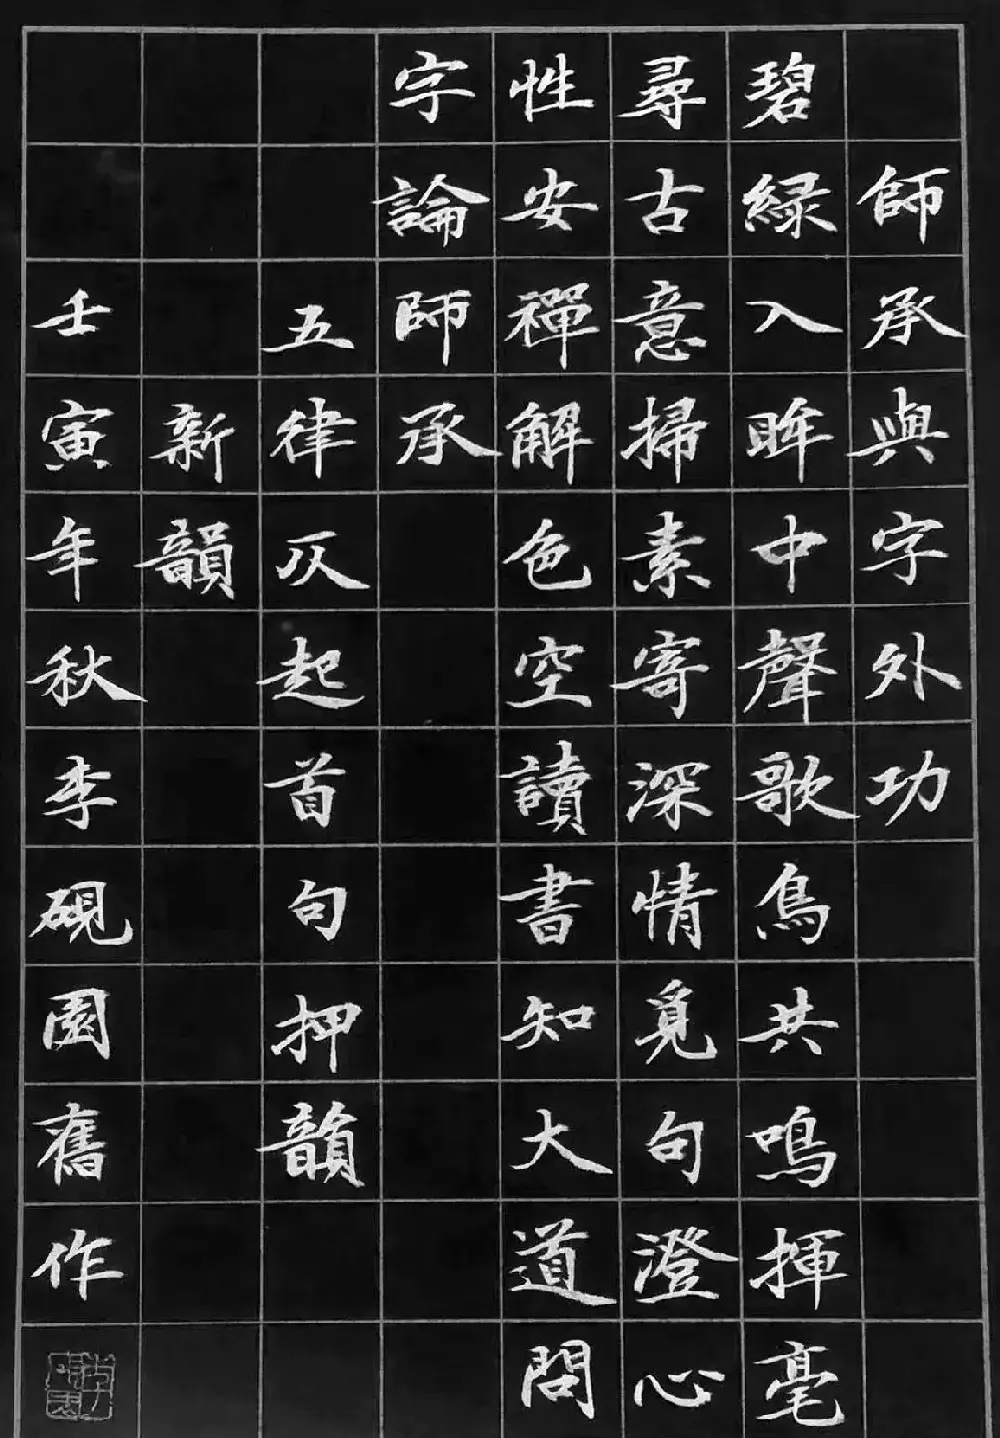 師承與字外功
碧綠入眸中聲歌鳥共鳴揮毫
尋古意掃素寄深情覓句澄心
性安禪解色空讀書知大道問
字論師承
五律仄起首句押韻
新韻
壬寅年秋李硯園舊作